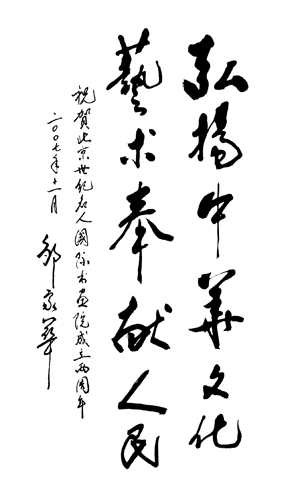 弘揚中華文化
藝术奉献人民
祝賀北京世纪名人國际书画院成立两周年
二〇〇七年十一月
邹家华